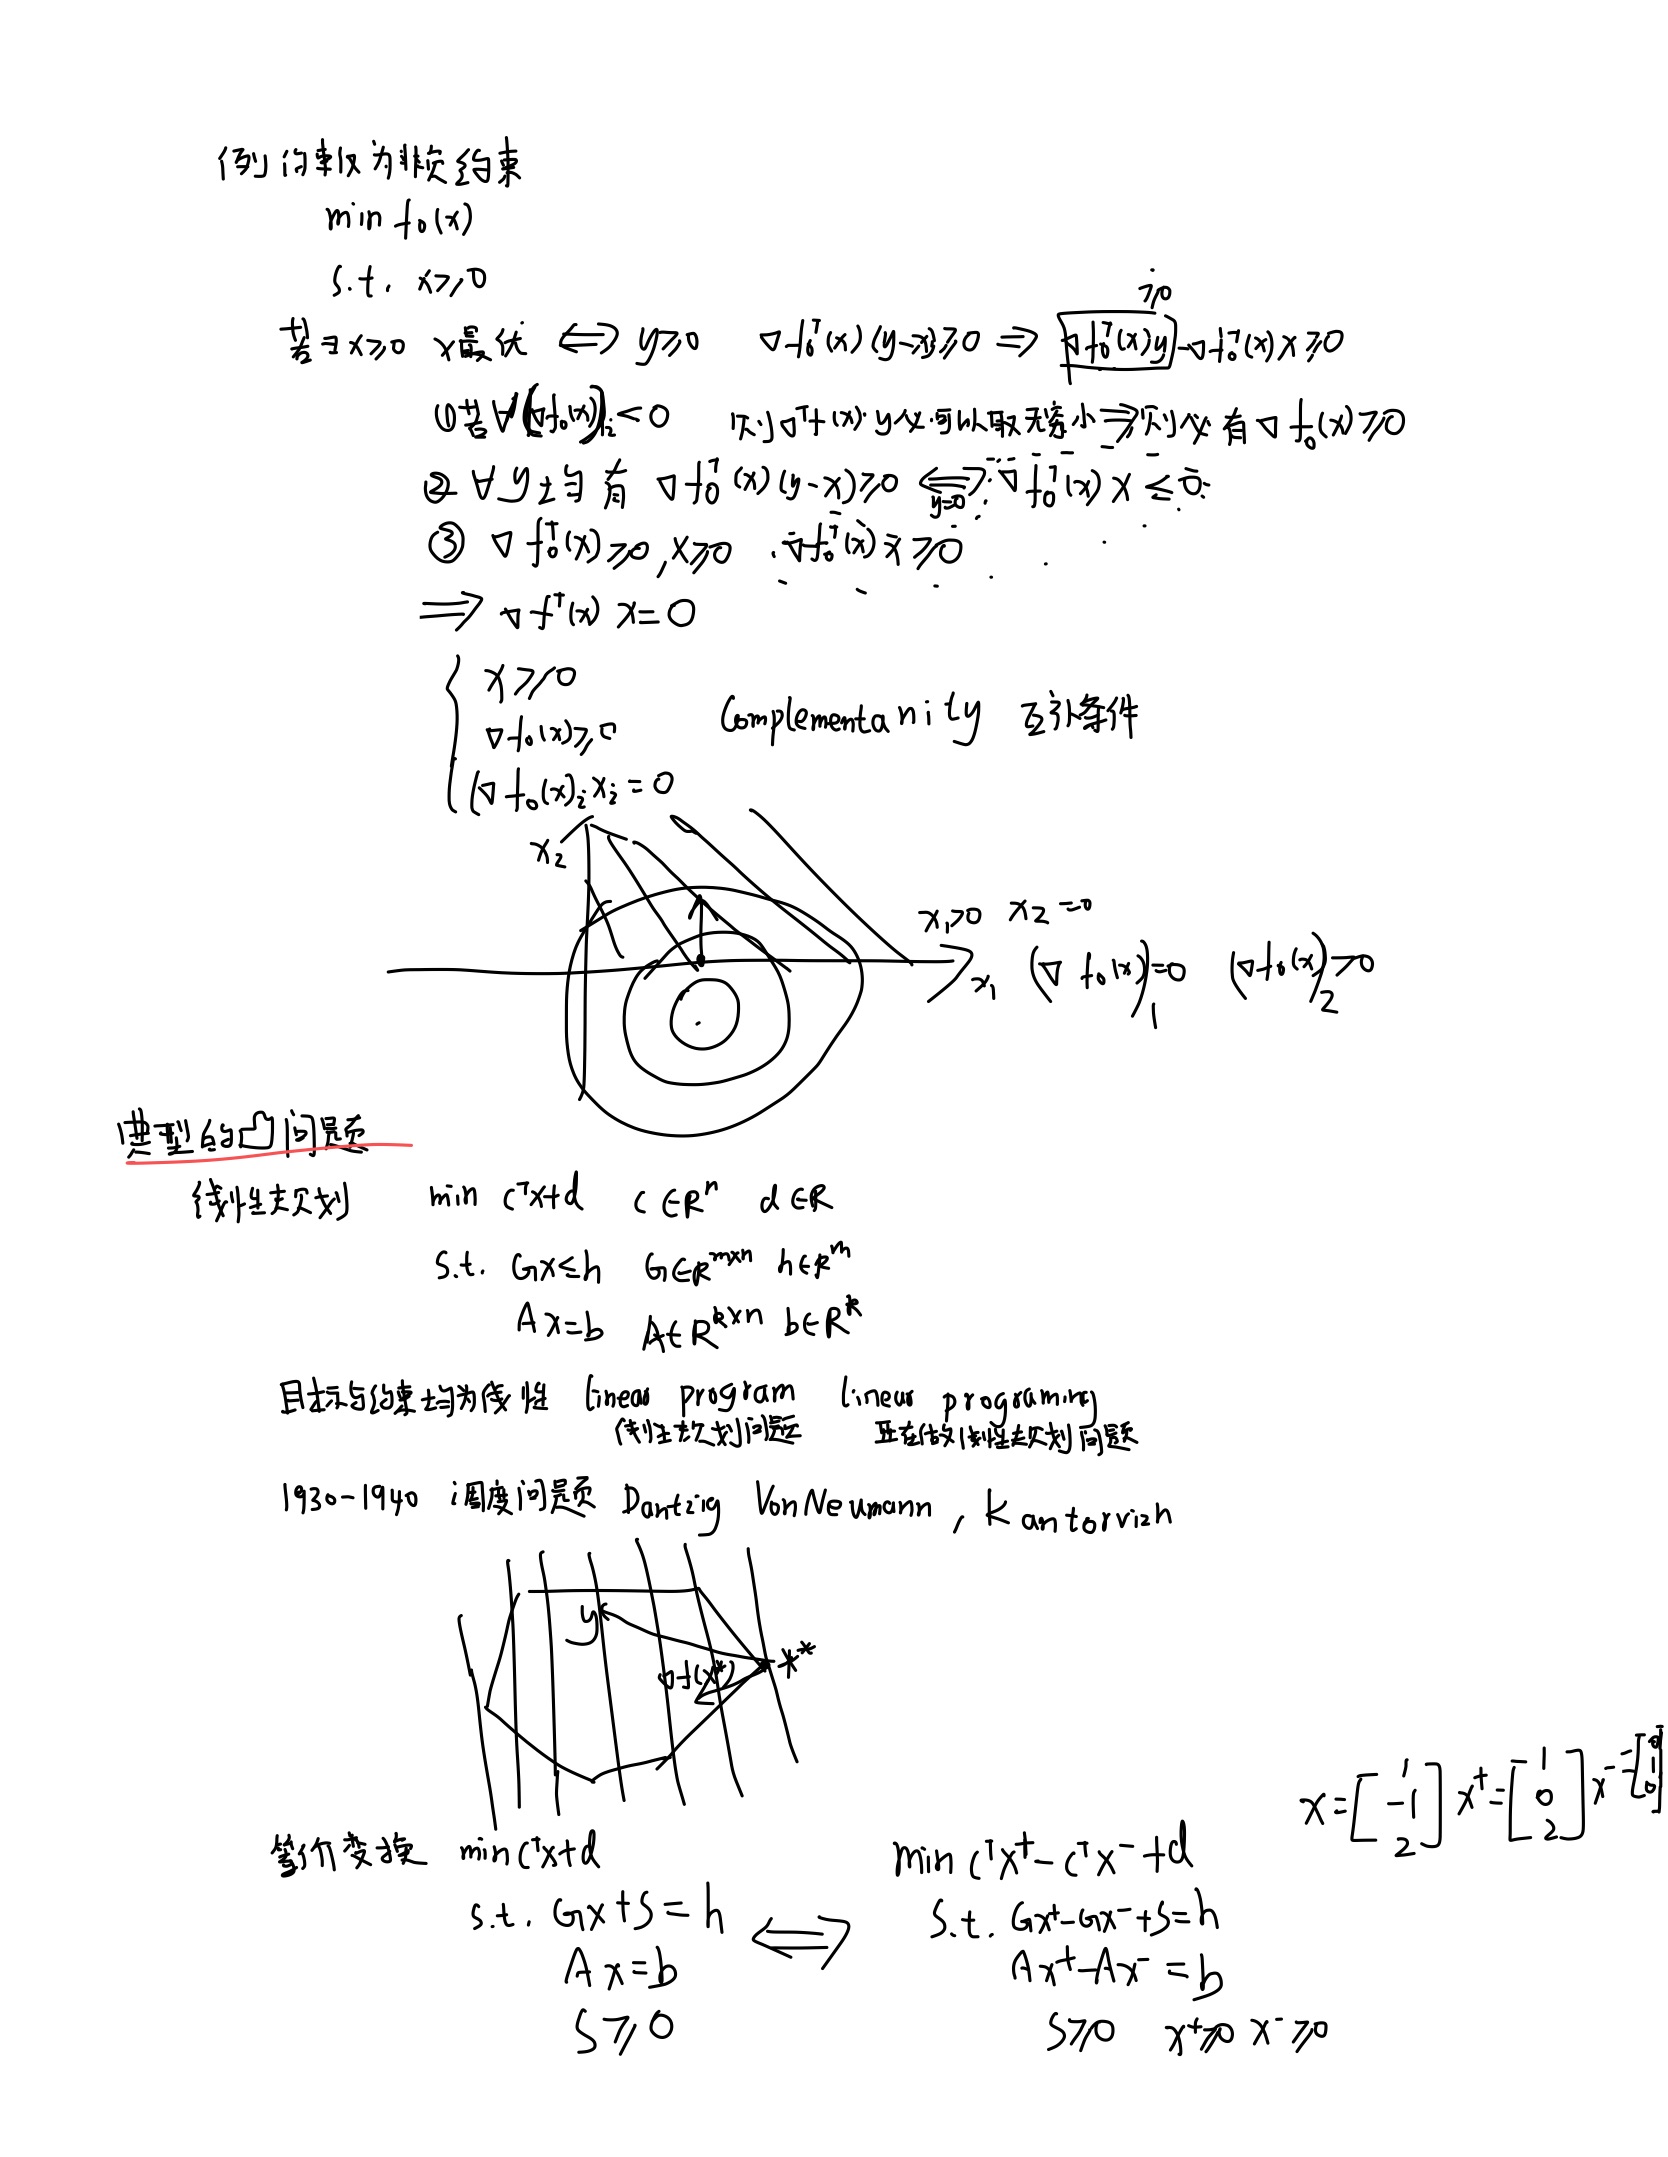 例 约束仅为非负约束
min f₀(x)
s.t. x≥0
若∃x≥0 x最优 ⟺ y≥0 ∇f₀ᵀ(x)(y-x)≥0 ⟹ ∇f₀ᵀ(x)y -∇f₀ᵀ(x)x≥0
≥0
①若∀(∇f₀(x))ᵢ<0 则∇ᵀf(x)·y必可以取无穷小⟹则必有∇f₀(x)≥0
②∀y均有 ∇f₀ᵀ(x)(y-x)≥0 ⟺ ∇f₀ᵀ(x)x≤0
y=0
③ ∇f₀ᵀ(x)≥0, x≥0 ∇f₀ᵀ(x)x≥0
⟹ ∇fᵀ(x) x=0
x≥0
∇f₀(x)≥0 Complementanity 互补条件
(∇f₀(x)ᵢxᵢ=0
x₂
x₁>0 x₂=0
x₁ (∇f₀(x))₁=0 (∇f₀(x))₂≥0
典型的凸问题
线性规划 min cᵀx+d c∈Rⁿ d∈R
s.t. Gx≤h G∈Rᵐˣⁿ h∈Rᵐ
Ax=b A∈Rᵏˣⁿ b∈Rᵏ
目标与约束均为线性 linear program linear programing
线性规划问题 正在做线性规划问题
1930-1940 调度问题 Dantzig Von Neumann, Kantorvizh
y
∇f(x*) x*
x=[1 -1 2] x⁺=[1 0 2] x⁻=[0 1 0]
等价变换 min cᵀx+d min cᵀx⁺-cᵀx⁻+d
s.t. Gx+s=h ⟺ s.t. Gx⁺-Gx⁻+s=h
Ax=b Ax⁺-Ax⁻=b
s≥0 s≥0 x⁺≥0 x⁻≥0